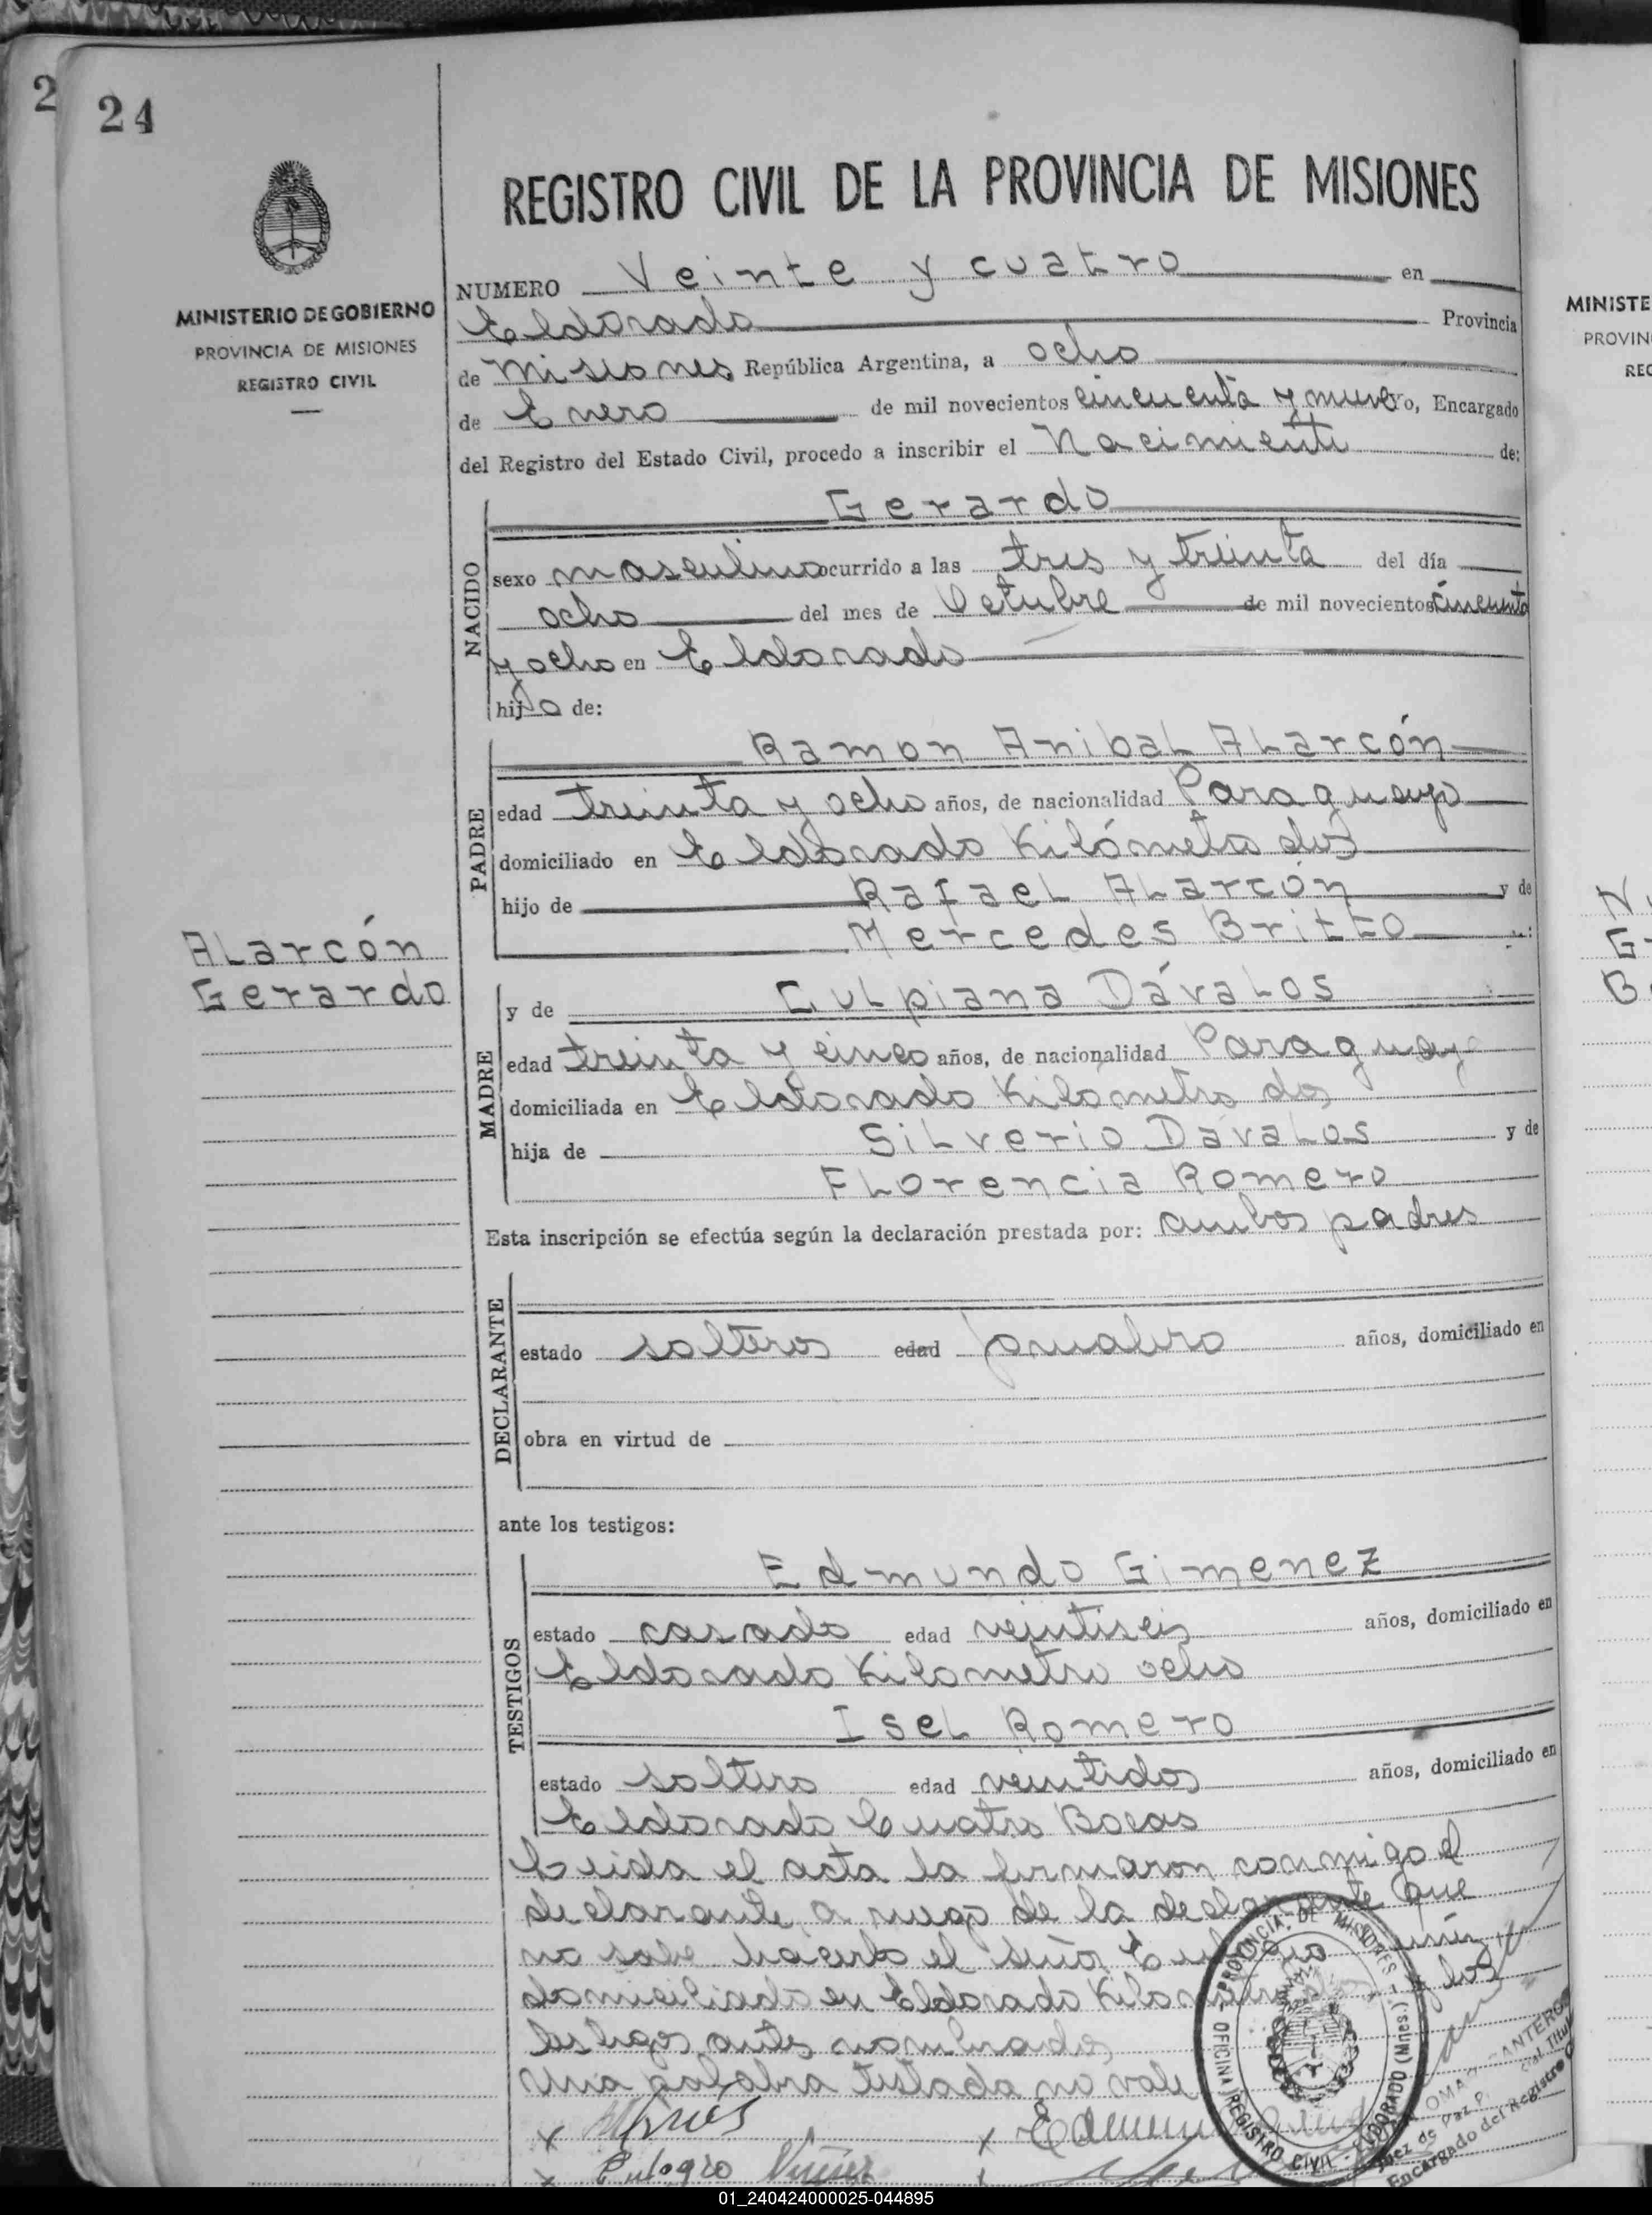 2
24
REGISTRO CIVIL DE LA PROVINCIA DE MISIONES
MINISTERIO DE GOBIERNO
PROVINCIA DE MISIONES
REGISTRO CIVIL
NUMERO Veinte y cuatro en
Eldorado Provincia
de Misiones República Argentina, a ocho
de Enero de mil novecientos cincuenta y nueve Yo, Encargado
del Registro del Estado Civil, procedo a inscribir el Nacimiento de:
NACIDO
Gerardo
sexo masculino ocurrido a las tres y treinta del día
ocho del mes de Octubre de mil novecientos cincuenta
y ocho en Eldorado
hijo de:
PADRE
Ramon Anibal Alarcón
edad treinta y ocho años, de nacionalidad Paraguayo
domiciliado en Eldorado Kilómetro dos
hijo de Rafael Alarcón y de
Mercedes Britto
Alarcón
Gerardo
MADRE
y de Gulpiana Dávalos
edad treinta y cinco años, de nacionalidad Paraguaya
domiciliada en Eldorado Kilometro dos
hija de Silverio Davalos y de
Florencia Romero
Esta inscripción se efectúa según la declaración prestada por: ambos padres
DECLARANTE
estado solteros edad años, domiciliado en
obra en virtud de
ante los testigos:
TESTIGOS
Edmundo Gimenez
estado casado edad veintiseis años, domiciliado en
Eldorado Kilometro ocho
Isel Romero
estado soltero edad veintidos años, domiciliado en
Eldorado Cuatro Bocas
Leida el acta la firmaron conmigo el
declarante, a ruego de la declarante que
no sabe hacerlo el señor Eulogio
domiciliado en Eldorado Kilometro y los
testigos antes nombrados
Una palabra testada no vale
Eulogio Nuñez
PROVINCIA DE MISIONES - ELDORADO (Mnes.)
OFICINA REGISTRO CIVIL
CANTERO
Juez de Paz
Encargado del Registro
MINISTE
PROVIN
REG
01_240424000025-044895